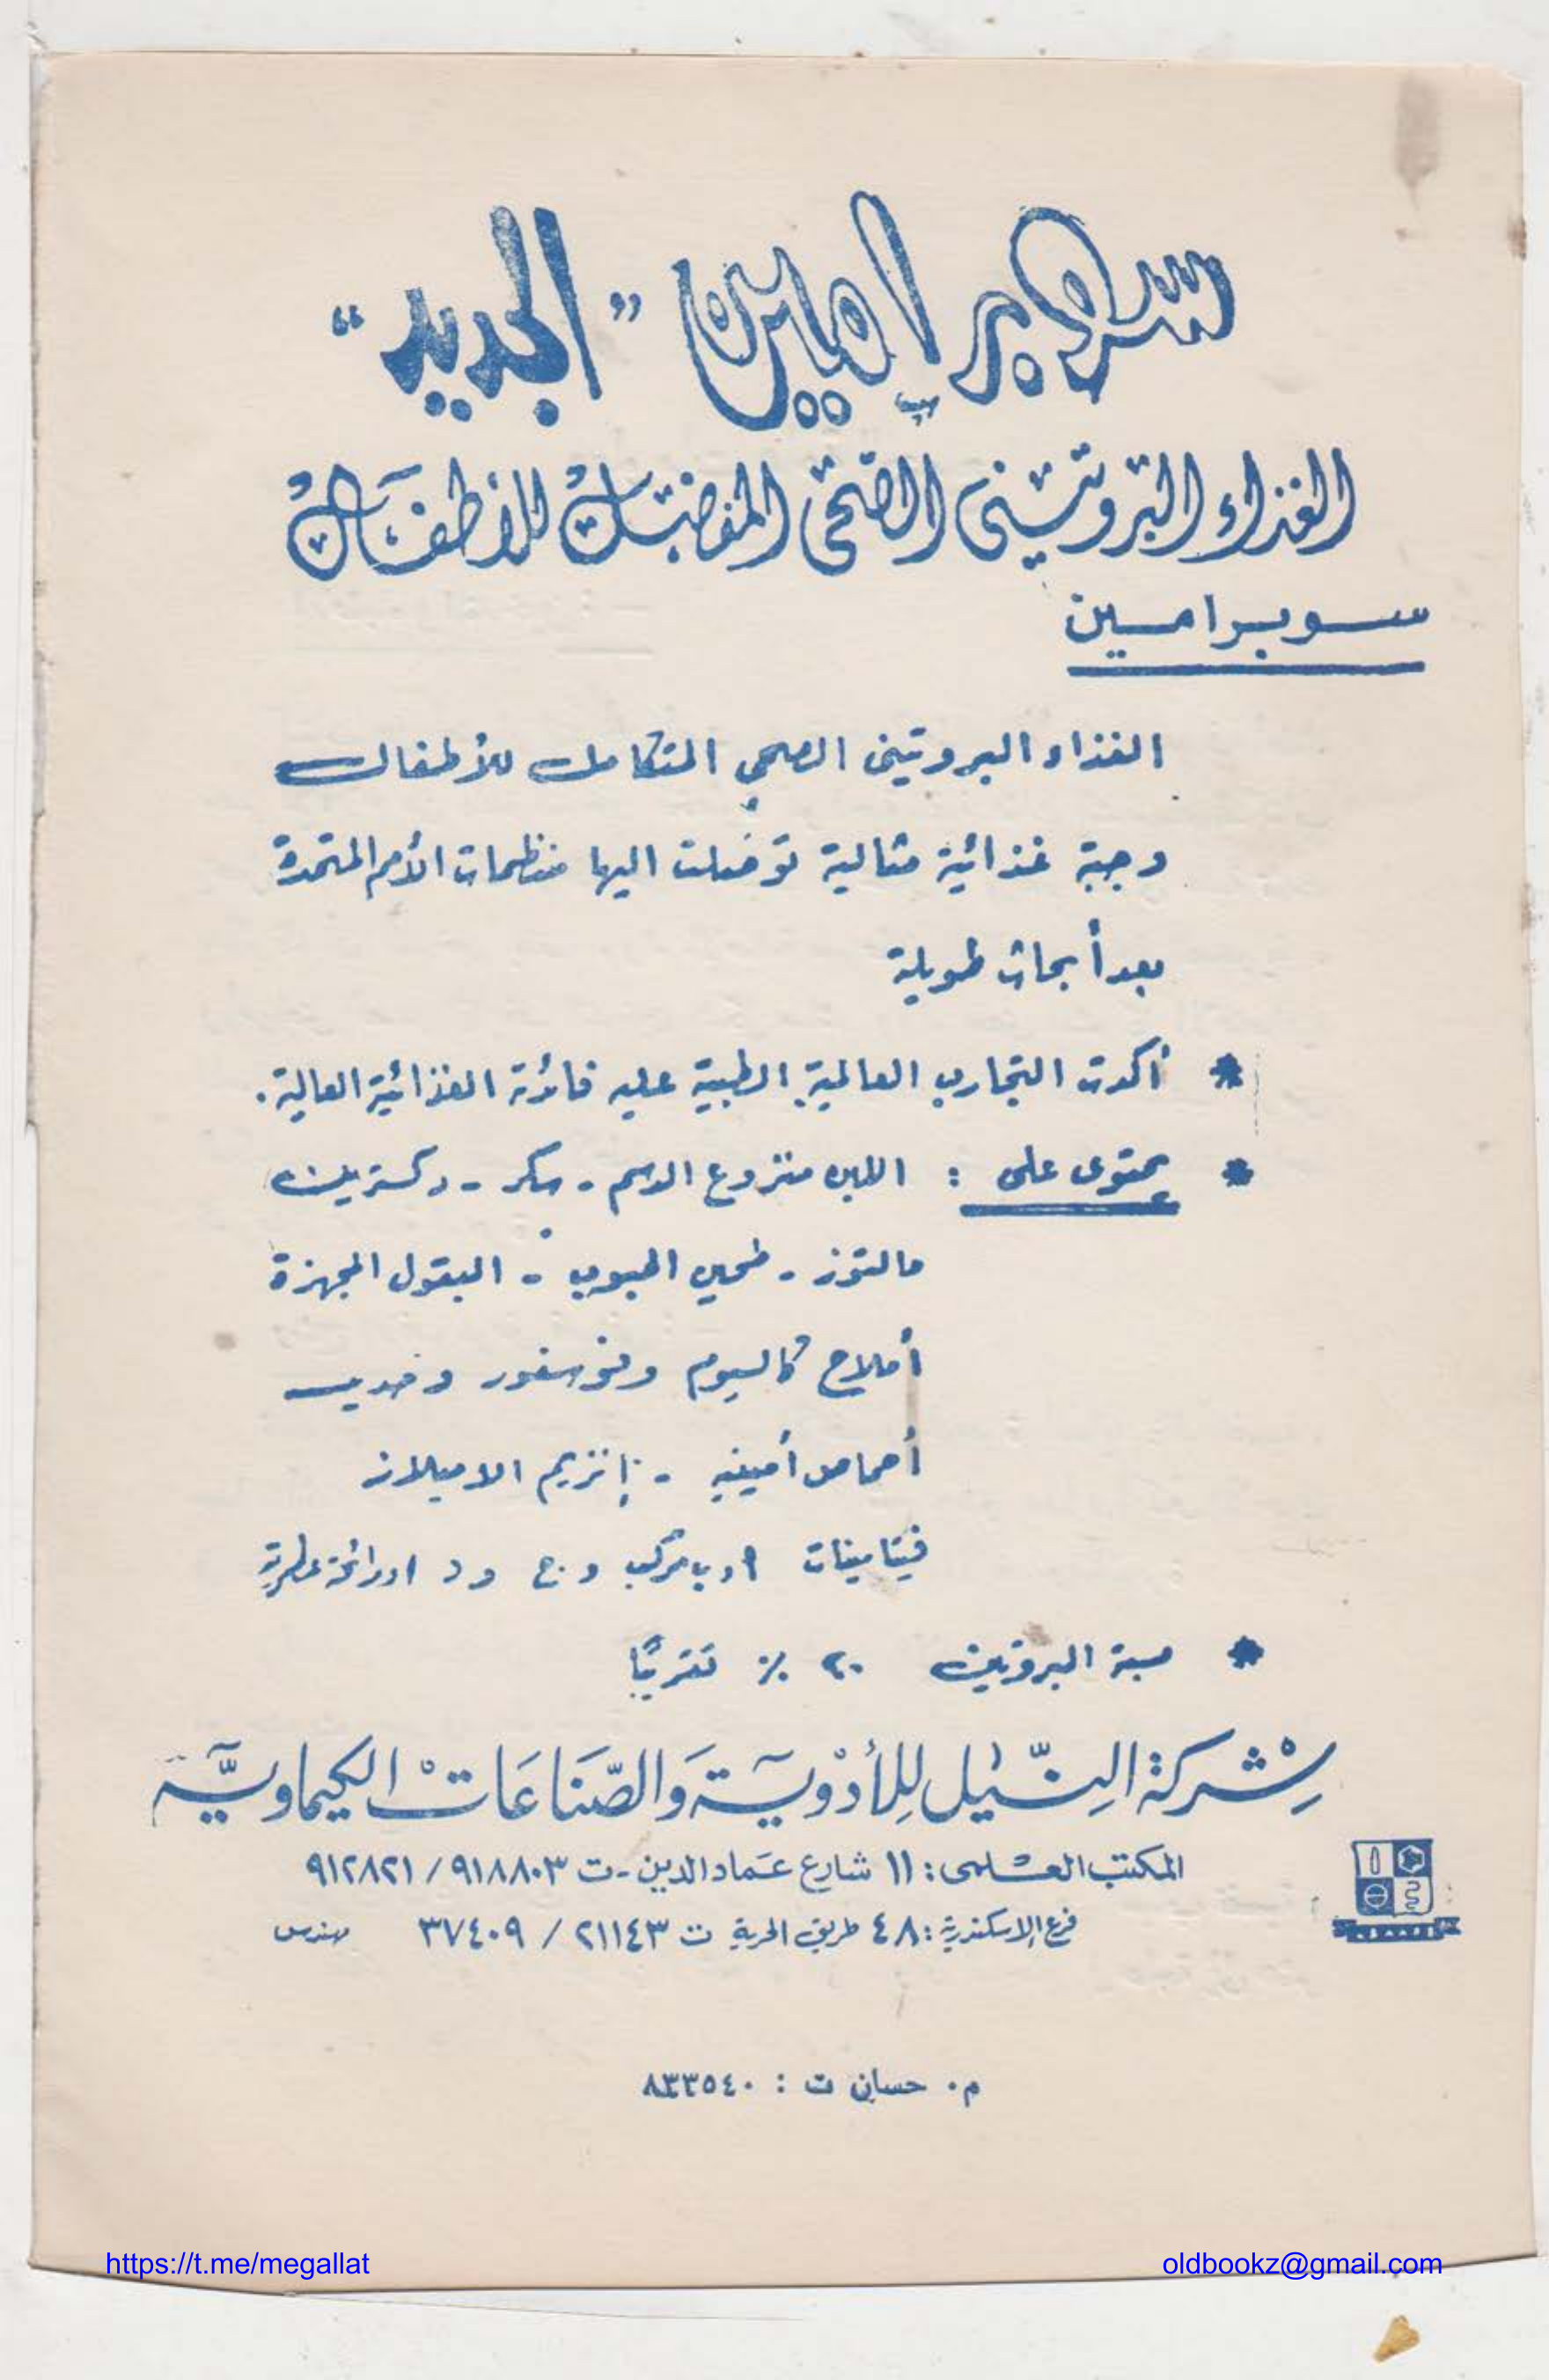 سوبر امين "الجديد"
الغذاء البروتيني الصحى المفضل للأطفال
سوبرامين
الغذاء البروتينى الصحي المتكامل للأطفال
وجبة غذائية مثالية توصلت اليها منظمات الأمم المتحدة
بعد أبحاث طويلة
* أكدت التجارب العالمية الطبية عليه فائدته الغذائية العالية.
* يحتوى على : اللبن منزوع الدسم - سكر - دكسترين
مالتوز - طحين الحبوب - البقول المجهزة
أملاح كالسيوم وفوسفور وحديد
أحماض أمينيه - إنزيم الاميلاز
فيتامينات أ و ب مركب و ج و د
* نسبة البروتين ٢٠ ٪ تقريبًا
شركة النيل للأدوية والصناعات الكيماوية
المكتب العلمى : ١١ شارع عماد الدين - ت ٩١٨٨٠٣ / ٩١٢٨٢١
فرع الاسكندرية : ٤٨ طريق الحرية ت ٢١١٤٣ / ٣٧٤٠٩ مهندس
م. حسان ت : ٨٣٣٥٤٠
https://t.me/megallat
oldbookz@gmail.com